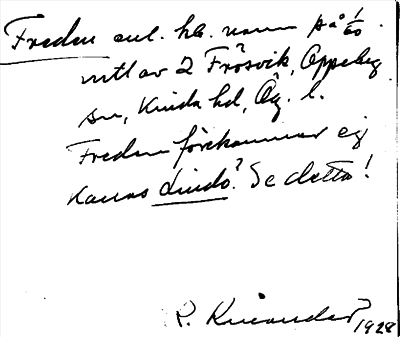 Freden enl. hb. namn på 1/60.
mtl av 2 Frösvik, Oppeby
sn, Kinda hd, Ög. l.
Freden förekommer ej
Kanas Lindö? Se detta!
R. Knéander 1928